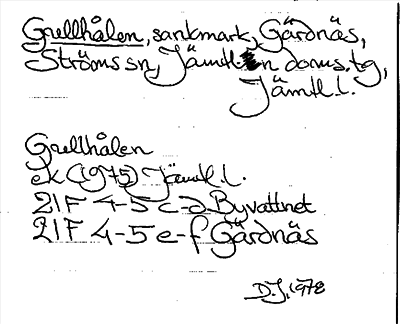 Grellhålen, sankmark, Gärdnäs,
Ströms sn, Jämtl:n doms. tg,
Jämtl. l.
Grellhålen
ek (1975) Jämtl. l.
21F 4-5 c-d Byvattnet
21F 4-5 e-f Gärdnäs
D.J. 1978